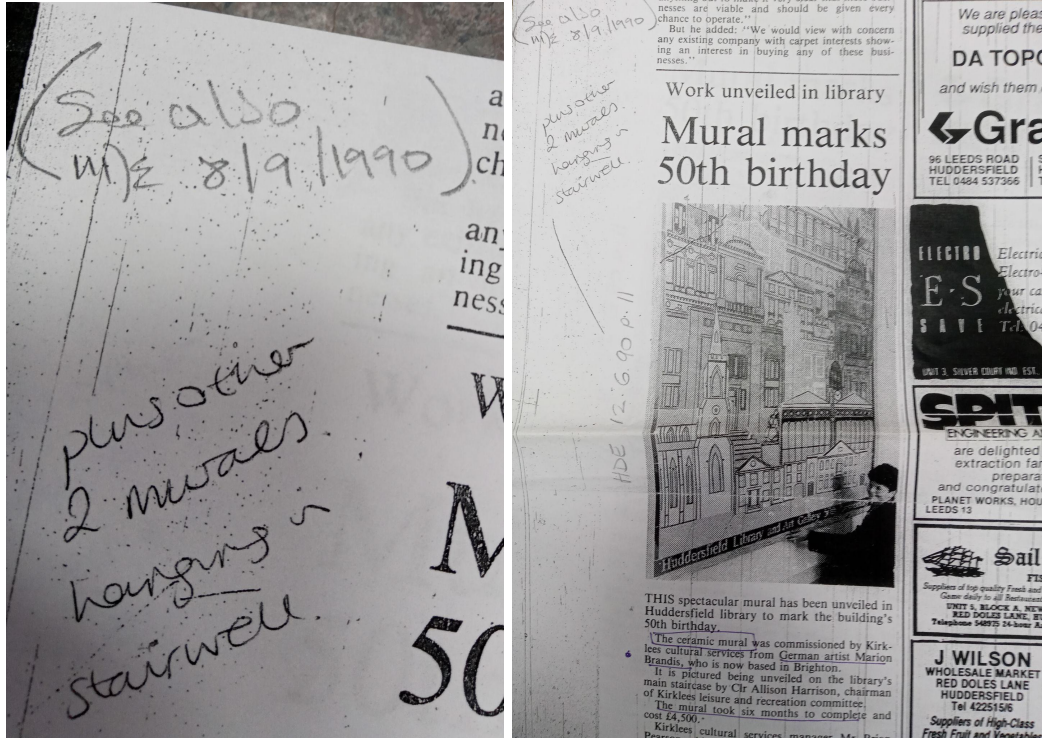 (See also
M/E 8/9/1990)
plus other
2 murals
hanging in
stairwell.
ch
any
ing
ness
50
(See also
M/E 8/9/1990)
plus other
2 murals
hanging in
stairwell
HDE 12.6.90 p.11
nesses are viable and should be given every
chance to operate."
But he added: "We would view with concern
any existing company with carpet interests show-
ing an interest in buying any of these busi-
nesses."
Work unveiled in library
Mural marks
50th birthday
Huddersfield Library and Art Gallery
THIS spectacular mural has been unveiled in
Huddersfield library to mark the building's
50th birthday.
The ceramic mural was commissioned by Kirk-
lees cultural services from German artist Marion
Brandis, who is now based in Brighton.
It is pictured being unveiled on the library's
main staircase by Clr Allison Harrison, chairman
of Kirklees leisure and recreation committee.
The mural took six months to complete and
cost £4,500.
Kirklees cultural services manager Mr Brian
We are pleas
supplied the
DA TOPO
and wish them
Gra
96 LEEDS ROAD
HUDDERSFIELD
TEL 0484 537366
ELECTRO
E·S
SAVE
Electric
Electro-
your ca
electric
Tel. 04
UNIT 3, SILVER COURT IND. EST.
SPIT
ENGINEERING A
are delighted
extraction fan
prepara
and congratulate
PLANET WORKS, HOU
LEEDS 13
Sail
FIS
Suppliers of top quality Fresh and
Game daily to all Restaurant
UNIT 5, BLOCK A, NEW
RED DOLES LANE, HU
Telephone 548925 24-hour A
J WILSON
WHOLESALE MARKET
RED DOLES LANE
HUDDERSFIELD
Tel 422515/6
Suppliers of High-Class
Fresh Fruit and Vegetables